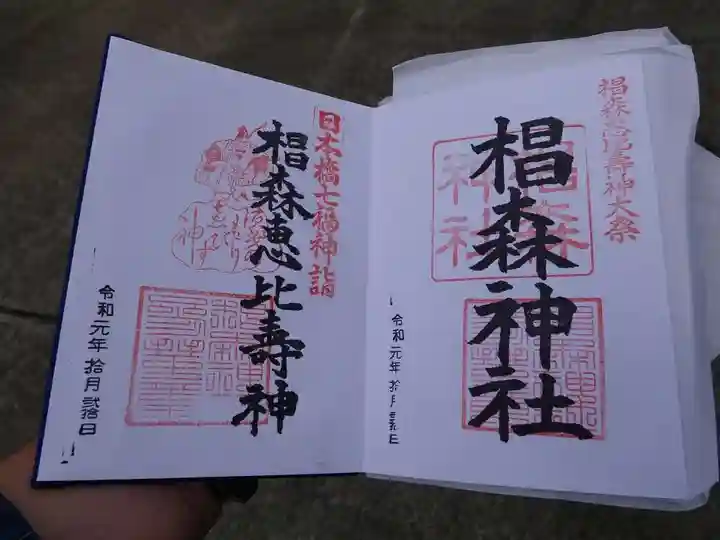 椙森恵比壽神大祭
椙森
神社
椙森神社
令和元年拾月弐拾日
日本橋七福神詣
椙森恵比壽神
令和元年拾月弐拾日